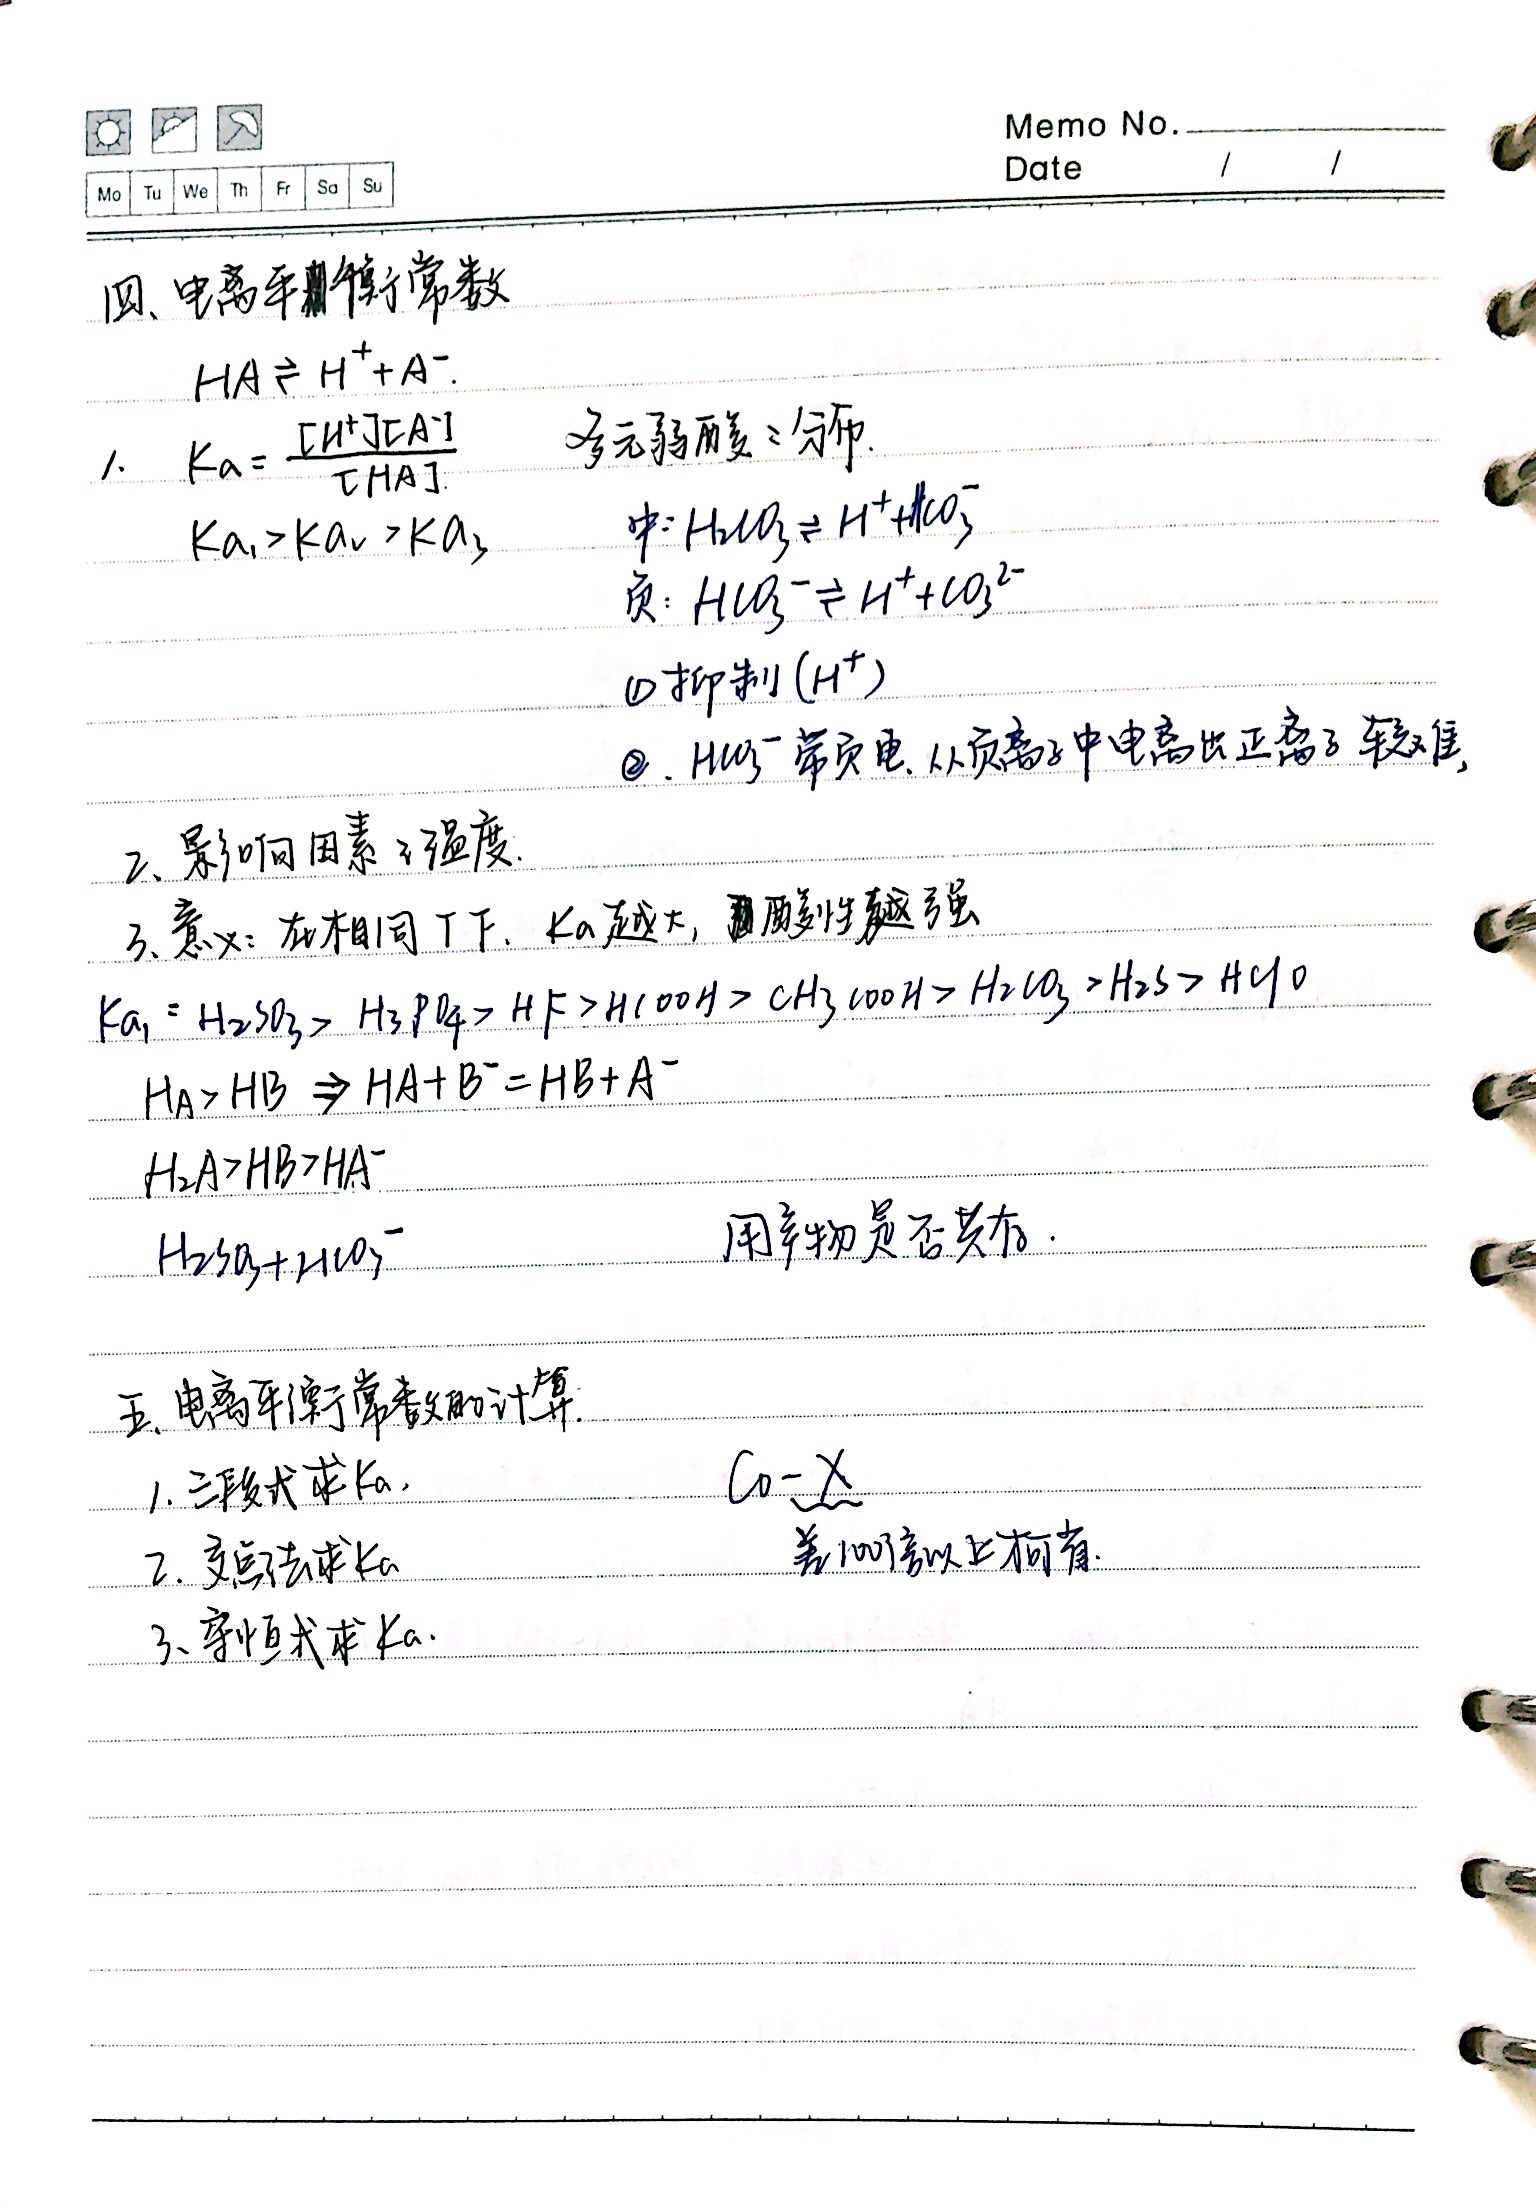 Memo No.
Date / /
Mo Tu We Th Fr Sa Su
四、电离平衡常数
HA⇌H⁺+A⁻.
1. Ka=[H⁺][A⁻]/[HA].
多元弱酸:分布.
Ka₁>Ka₂>Ka₃
中:H₂CO₃⇌H⁺+HCO₃⁻
负:HCO₃⁻⇌H⁺+CO₃²⁻
①抑制(H⁺)
②.HCO₃⁻带负电、从负离子中电离出正离子较难,
2、影响因素:温度.
3、意义:在相同T下、Ka越大,酸性越强
Ka₁:H₂SO₃>H₃PO₄>HF>HCOOH>CH₃COOH>H₂CO₃>H₂S>HClO
HA>HB⇒HA+B⁻=HB+A⁻
H₂A>HB>HA⁻
H₂SO₃+HCO₃⁻
用产物是否共存.
五、电离平衡常数的计算.
1.三段式求Ka.
C₀-X
2.交点法求Ka
差100倍以上才可省.
3、守恒式求Ka.